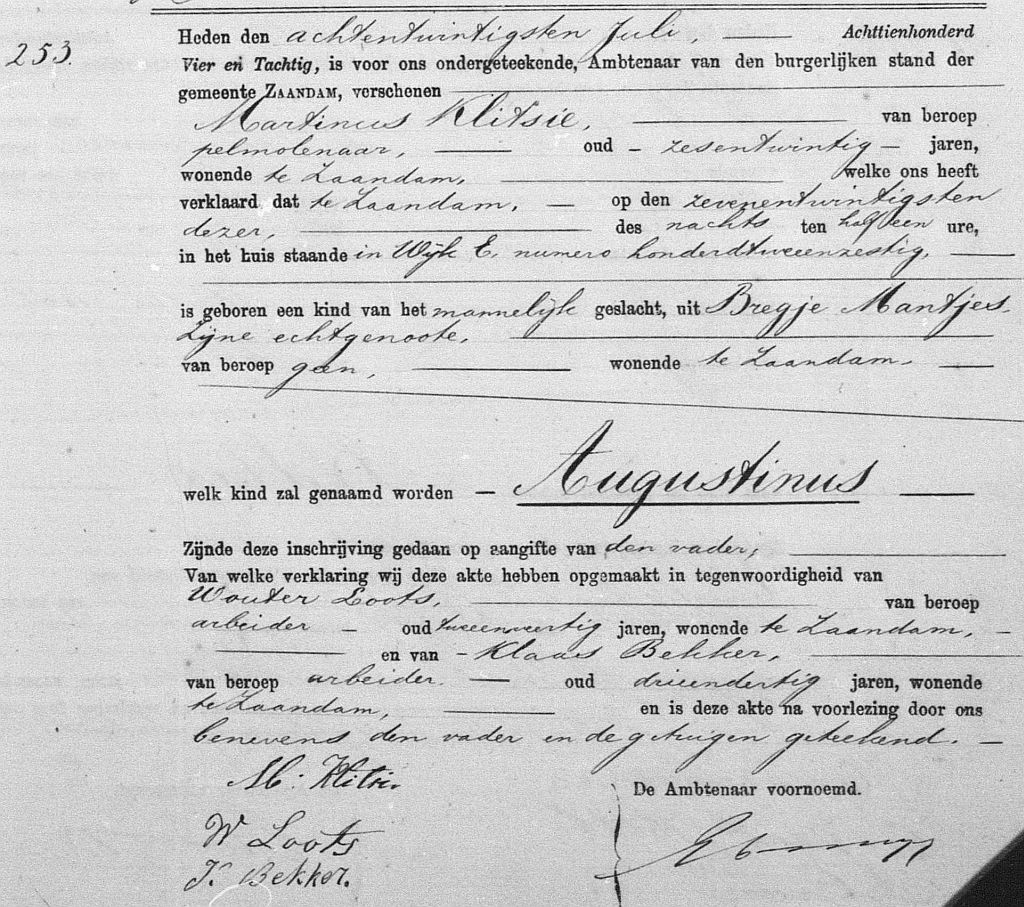 253.
Heden den achtentwintigsten Juli, Achttienhonderd
Vier en Tachtig, is voor ons ondergeteekende, Ambtenaar van den burgerlijken stand der
gemeente ZAANDAM, verschenen
Martinus Klitsie, van beroep
pelmolenaar, oud - zesentwintig - jaren,
wonende te Zaandam, welke ons heeft
verklaard dat te Zaandam, - op den zevenentwintigsten
dezer, des nachts ten half een ure,
in het huis staande in Wijk E. numero honderdtweeenzestig,
is geboren een kind van het mannelijk geslacht, uit Bregje Mantjes.
Zijne echtgenoote,
van beroep geen, wonende te Zaandam.
welk kind zal genaamd worden - Augustinus
Zijnde deze inschrijving gedaan op aangifte van den vader,
Van welke verklaring wij deze akte hebben opgemaakt in tegenwoordigheid van
Wouter Loots, van beroep
arbeider - oud tweeenveertig jaren, wonende te Zaandam, -
en van - Klaas Bekker,
van beroep arbeider. oud drieendertig jaren, wonende
te Zaandam, en is deze akte na voorlezing door ons
benevens den vader en de getuigen geteekend. -
M. Klitsie.
De Ambtenaar voornoemd.
W Loots
K. Bekker.